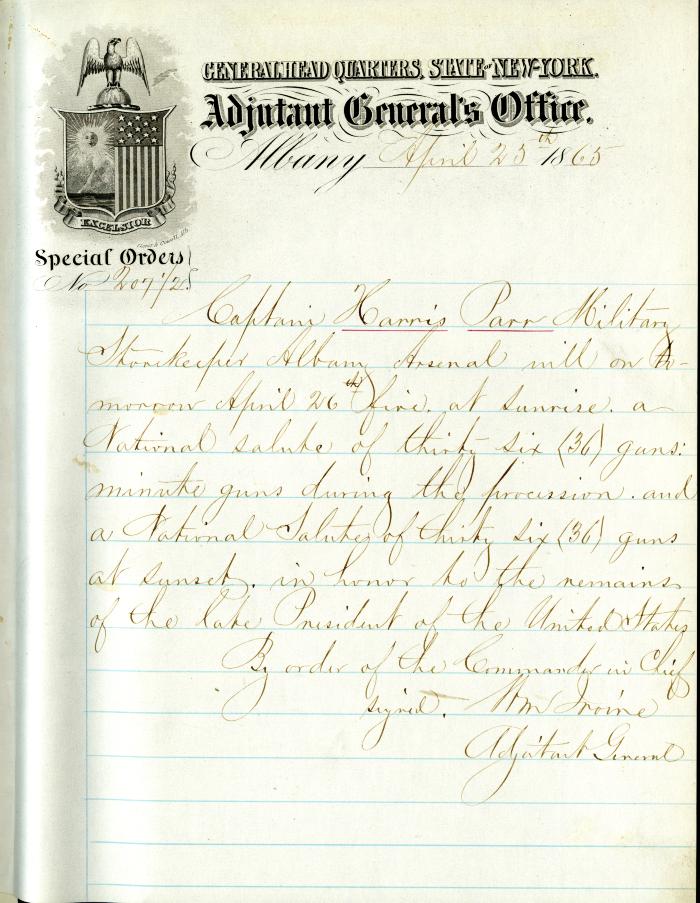 GENERAL HEAD QUARTERS, STATE OF NEW-YORK.
Adjutant General's Office.
Albany April 25th 1865
EXCELSIOR
Special Orders
No 207 1/2
Captain Harris Parr Military
Storekeeper Albany Arsenal will on to-
morrow April 26th fire, at sunrise, a
National salute of thirty six (36) guns;
minute guns during the procession, and
a National Salute of thirty six (36) guns
at sunset, in honor to the remains
of the late President of the United States
By order of the Commander in Chief
signed. Wm Irvine
Adjutant General